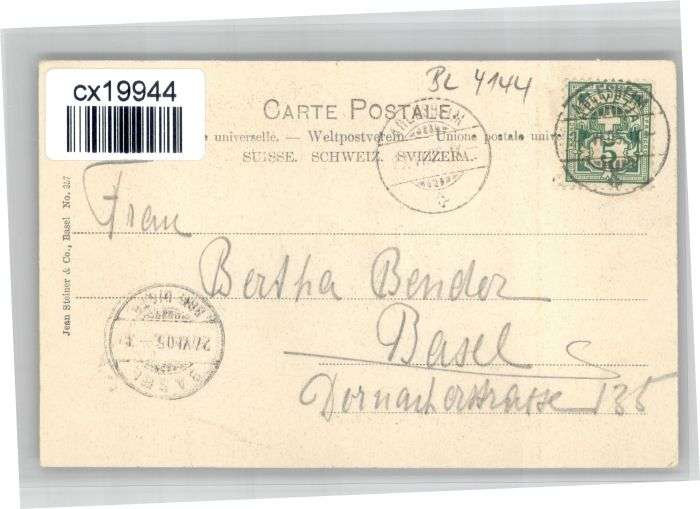 cx19944
BL 4144
CARTE POSTALE.
universelle. — Weltpostverein. — Unione postale univ
SUISSE. SCHWEIZ. SVIZZERA.
Jean Steiner & Co., Basel No. 247
Frau
Bertha Bender
Basel
Dornacherstrasse 135
5
BASEL